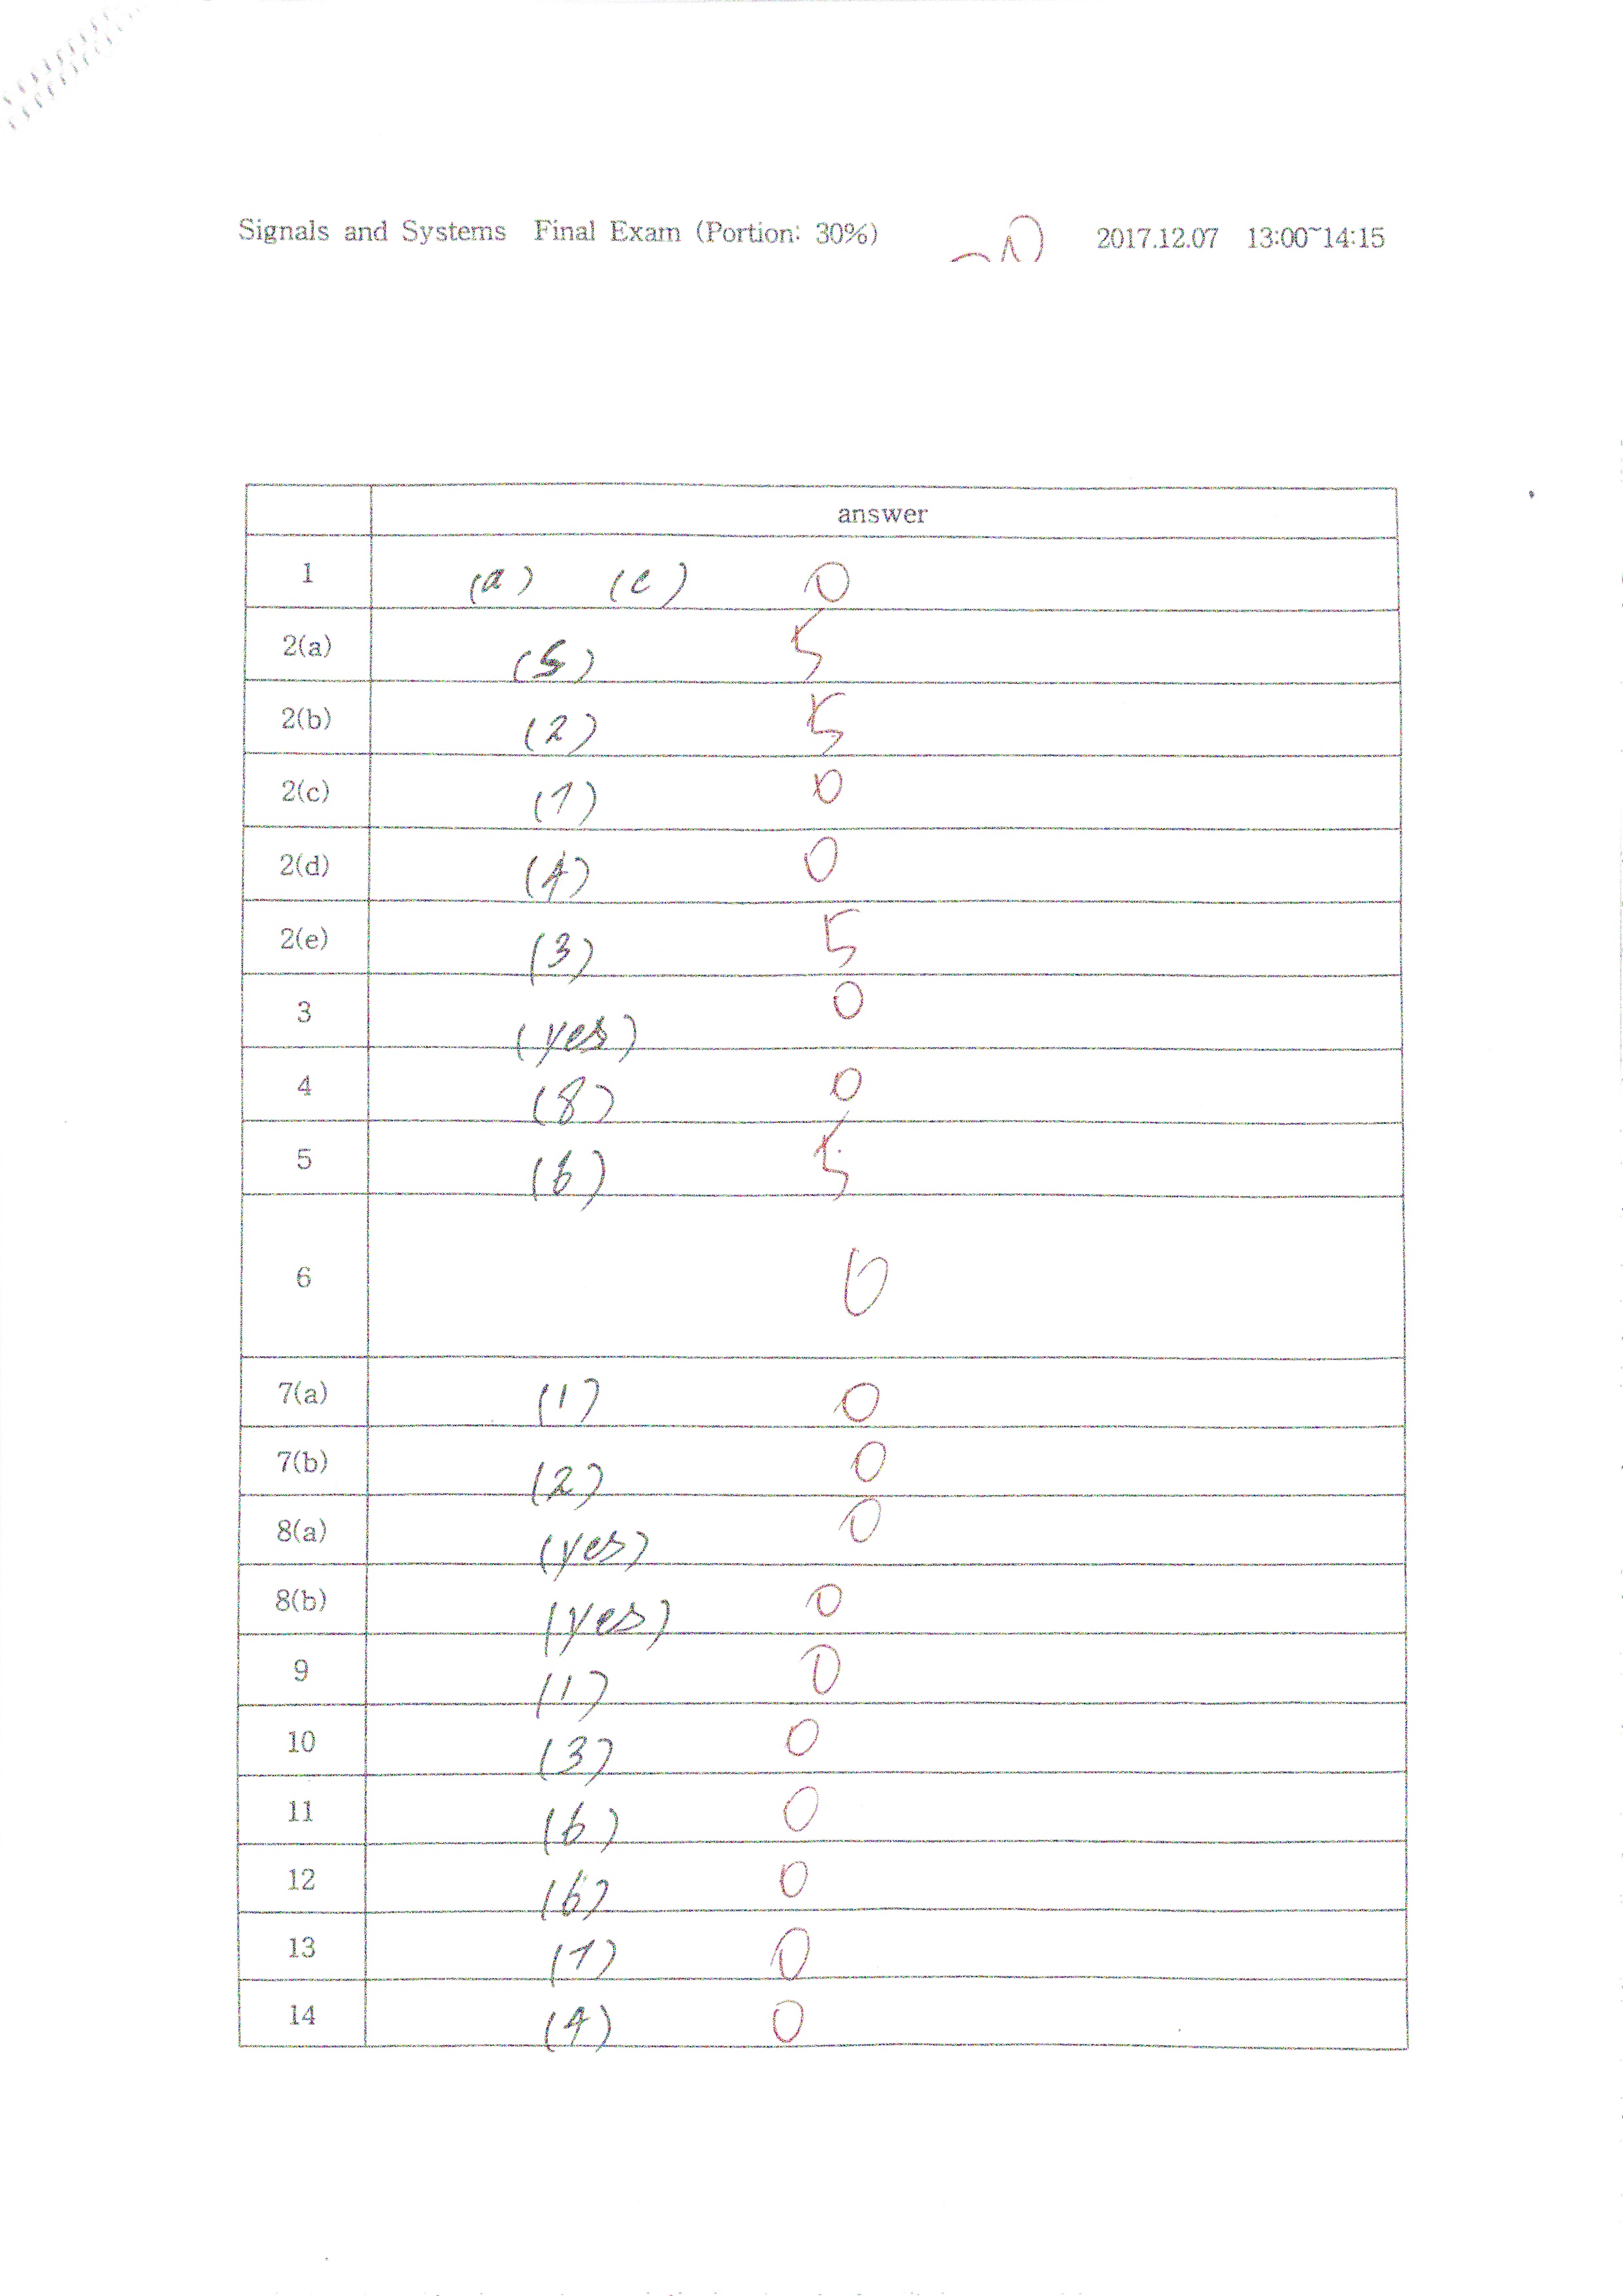 Signals and Systems Final Exam (Portion: 30%) 2017.12.07 13:00~14:15
answer
1 (a) (c) 0
2(a) (5) 5
2(b) (2) 5
2(c) (1) 0
2(d) (4) 0
2(e) (3) 5
3 (yes) 0
4 (8) 0
5 (6) 5
6 0
7(a) (1) 0
7(b) (2) 0
8(a) (yes) 0
8(b) (yes) 0
9 (1) 0
10 (3) 0
11 (6) 0
12 (6) 0
13 (1) 0
14 (4) 0